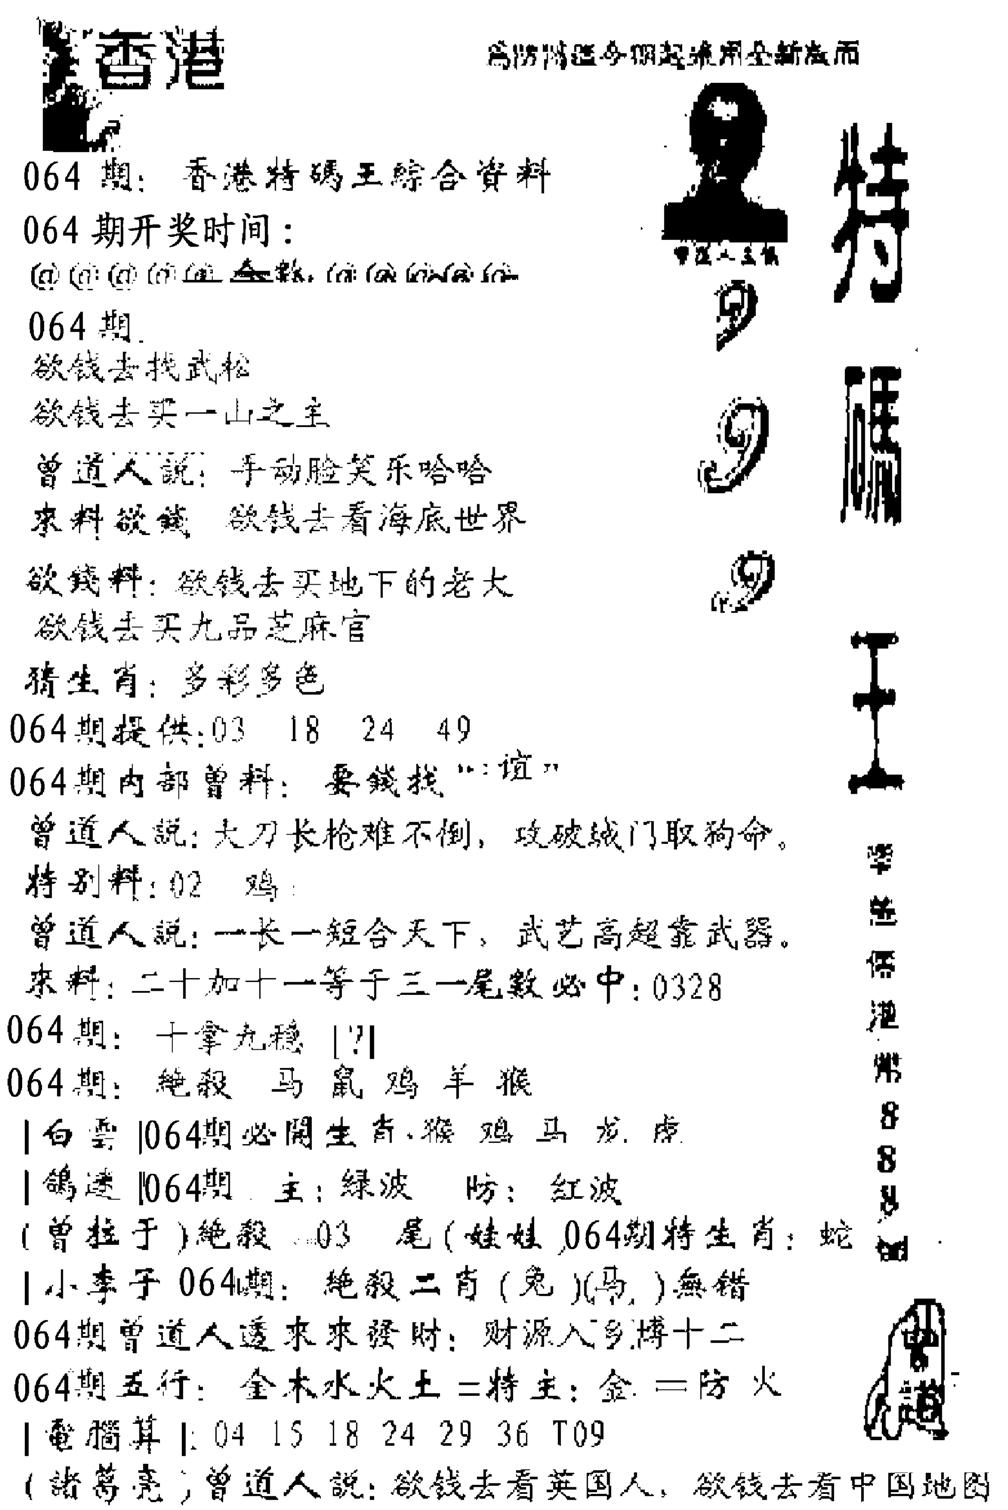 香港
為防假冒今期起采用全新版面
064 期： 香港特碼王綜合資料
064 期开奖时间：
064 期
欲钱去找武松
欲钱去买一山之主
曾道人説：手动脸笑乐哈哈
來料欲錢 欲钱去看海底世界
欲錢料：欲钱去买地下的老大
欲钱去买九品芝麻官
猜生肖：多彩多色
064期提供:03 18 24 49
064期内部曾料：要錢找“：谊”
曾道人説：大刀长枪难不倒，攻破城门取狗命。
特别料：02 鸡
曾道人説：一长一短合天下，武艺高超靠武器。
來料：二十加十一等于三一尾数必中：0328
064期： 十拿九稳 [?]
064期： 絶殺 马 鼠 鸡 羊 猴
|白雲|064期必開生肖.猴 鸡 马 龙 虎
|鴿迷|064期 主：緑波 防： 红波
(曾拉于)絶殺 03 尾(娃娃)064期特生肖： 蛇
|小李子 064期： 絶殺二肖(兔)(马)無错
064期曾道人透來來發財：财源入乡博十二
064期五行： 金木水火土＝特主：金＝防 火
|電腦算|: 04 15 18 24 29 36 T09
(諸葛亮)曾道人説：欲钱去看英国人，欲钱去看中国地图
曾道人主供
9
9
9
特
碼
王
888